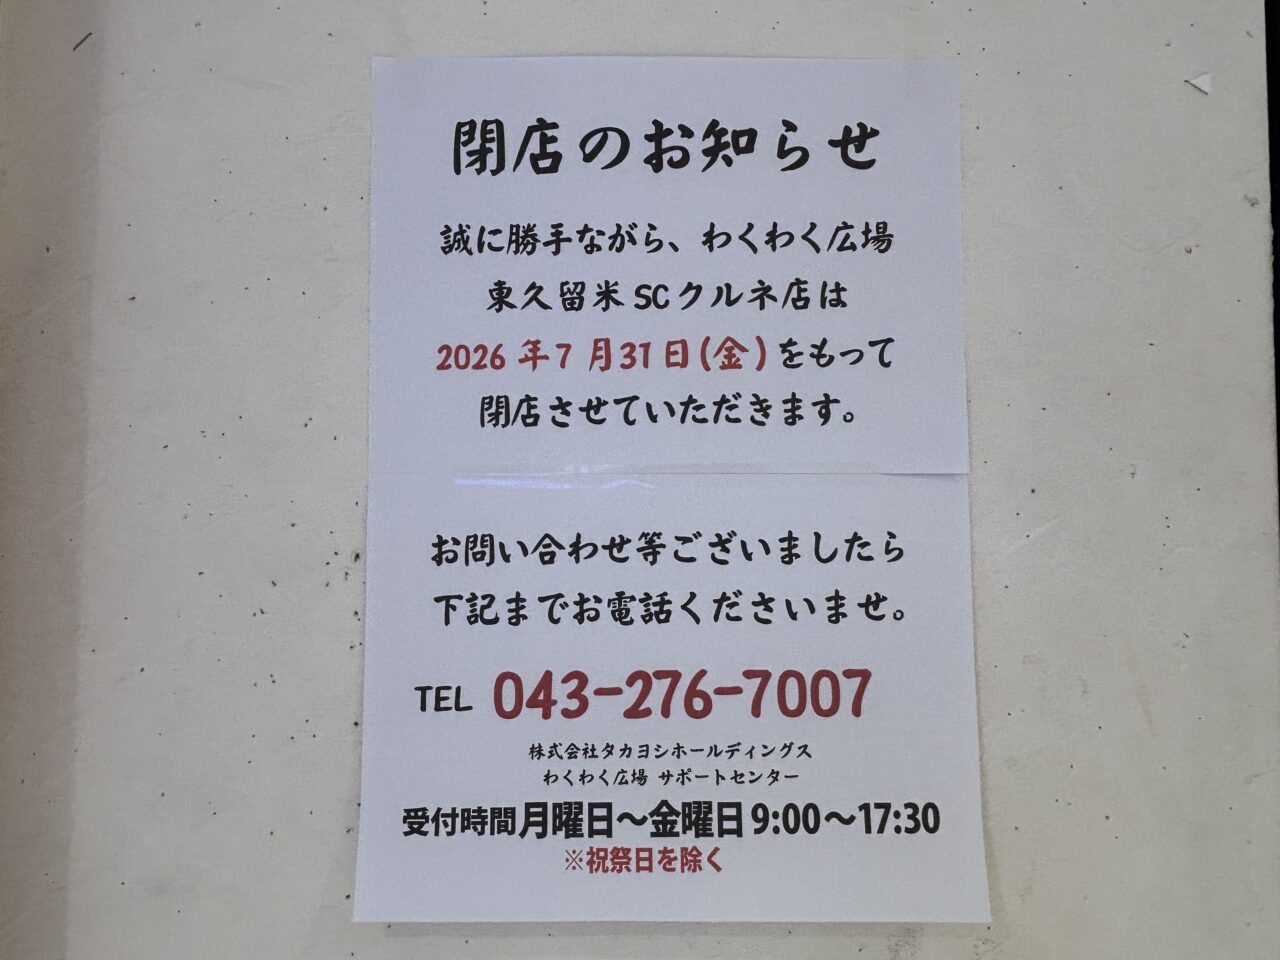 閉店のお知らせ
誠に勝手ながら、わくわく広場
東久留米SCクルネ店は
2026年7月31日(金)をもって
閉店させていただきます。
お問い合わせ等ございましたら
下記までお電話くださいませ。
TEL 043-276-7007
株式会社タカヨシホールディングス
わくわく広場 サポートセンター
受付時間月曜日～金曜日9:00～17:30
※祝祭日を除く